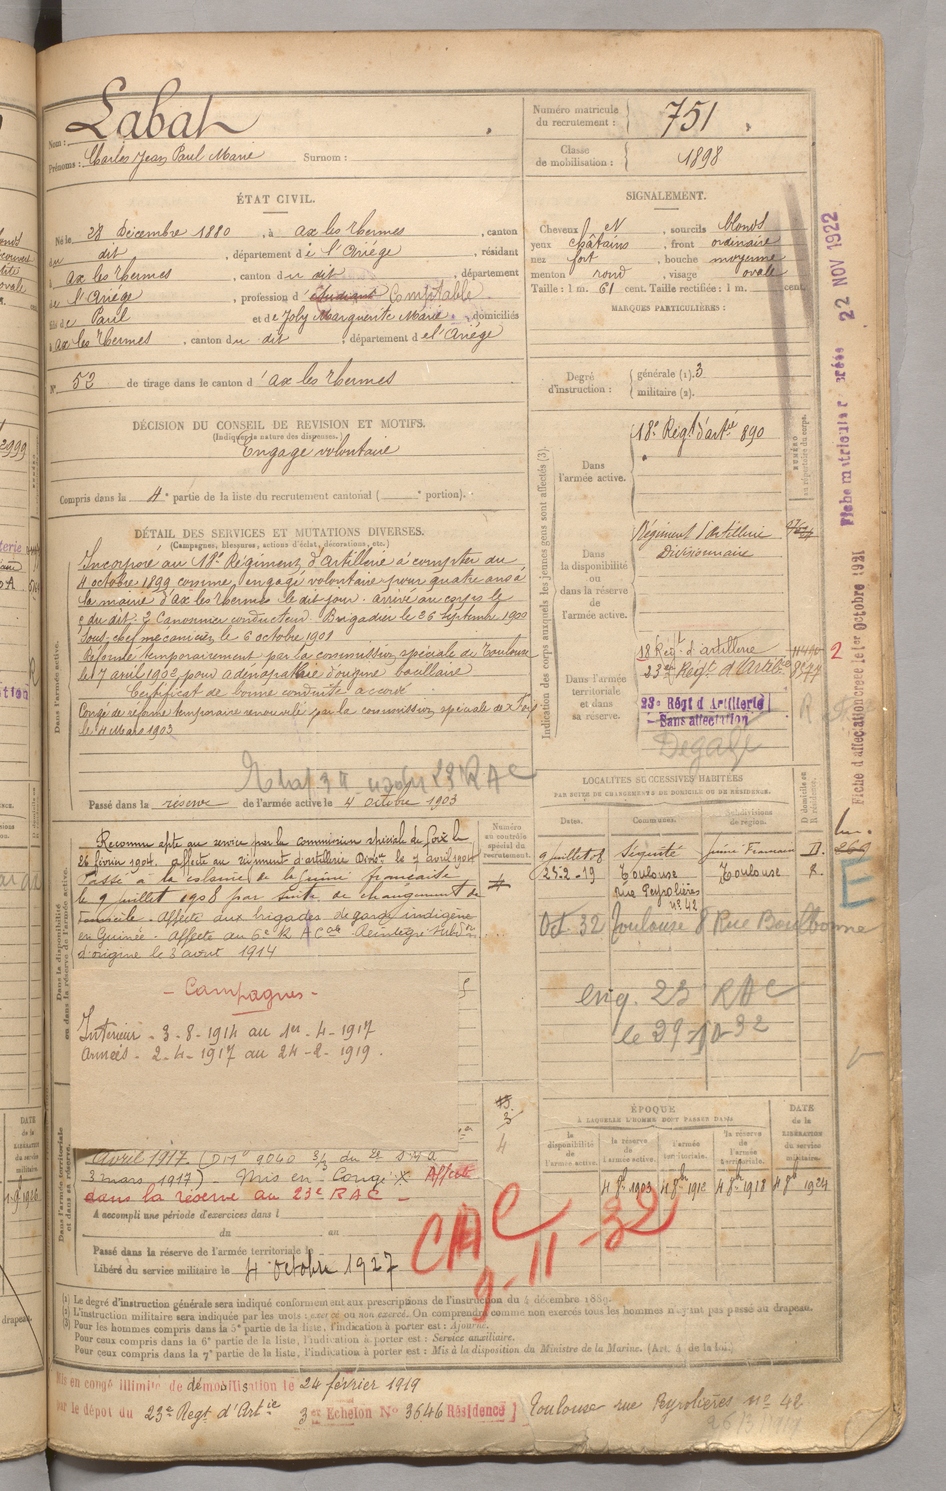 Nom : Labat
Prénoms : Charles Jean Paul Marie Surnom :
Numéro matricule du recrutement : 751
Classe de mobilisation : 1898
ÉTAT CIVIL.
Né le 28 Décembre 1880, à Ax les Thermes, canton
du dit, département de l'Ariége, résidant
à Ax les Thermes, canton du dit, département
de l'Ariége, profession d'étudiant Comptable
fils de Paul et de Joly Marguerite Marie domiciliés
à Ax les Thermes, canton du dit, département de l'Ariége
N° 52 de tirage dans le canton d'Ax les Thermes
SIGNALEMENT.
Cheveux N, sourcils blonds
yeux châtains, front ordinaire
nez fort, bouche moyenne
menton rond, visage ovale
Taille : 1 m. 61 cent. Taille rectifiée : 1 m. cent.
MARQUES PARTICULIÈRES :
Degré d'instruction : générale (1). 3
militaire (2).
DÉCISION DU CONSEIL DE REVISION ET MOTIFS.
(Indiquer la nature des dispenses.)
Engagé volontaire
Compris dans la 4e partie de la liste du recrutement cantonal ( portion).
DÉTAIL DES SERVICES ET MUTATIONS DIVERSES.
(Campagnes, blessures, actions d'éclat, décorations, etc.)
Dans l'armée active.
Incorporé au 18e Régiment d'Artillerie à compter du
4 octobre 1899 comme engagé volontaire pour quatre ans à
la mairie d'Ax les Thermes le dit jour. arrivé au corps le
du dit. 2e Canonnier conducteur. Brigadier le 26 septembre 1900
Sous chef mécanicien le 6 octobre 1901
Réformé temporairement par la commission spéciale de Toulouse
le 7 avril 1902 pour adénopathie d'origine bacillaire
Certificat de bonne conduite accordé
Congé de réforme temporaire renouvelé par la commission spéciale de Foix
le 4 Mars 1903
23 RAC
Passé dans la réserve de l'armée active le 4 octobre 1903
Indication des corps auxquels les jeunes gens sont affectés (3).
NUMÉRO au répertoire du corps.
Dans l'armée active.
18e Régt d'artie 890
Dans la disponibilité ou dans la réserve de l'armée active.
Régiment d'artillerie
Divisionnaire
Dans l'armée territoriale et dans sa réserve.
18 Régt d'artillerie
23e Régt d'Artillie
23e Régt d'Artillerie
Sans affectation
Dégagé
LOCALITÉS SUCCESSIVES HABITÉES
PAR SUITE DE CHANGEMENT DE DOMICILE OU DE RÉSIDENCE.
Dates. Communes. Subdivisions de région. D domicile ou R résidence.
9 juillet 08 Guinée Française D.
25-2-19 Toulouse Toulouse R.
rue Peyrolières
n° 42
Oct. 32 Toulouse 8 Rue Boulbonne
eng. 23 RAC
Numéro au contrôle spécial du recrutement.
Dans la disponibilité ou dans la réserve de l'armée active.
Reconnu apte au service par la commission spéciale de Foix le
26 février 1904. affecté au régiment d'artillerie Divre le 7 avril 1904
Passé à la colonie de la Guinée française
le 9 juillet 1908 par suite de changement de
domicile. Affecté aux brigades de garde indigène
en Guinée. Affecté au 6e R A C Réintégré subdon
d'origine le 3 avril 1914
- Campagnes -
Intérieur - 3-8-1914 au 1er-4-1917
Armées - 2-4-1917 au 24-2-1919.
Dans l'armée territoriale et dans sa réserve.
Avril 1917.
3 mars 1917) - Mis en Congé X Affecté
dans la réserve au 23e RAC -
A accompli une période d'exercices dans l
du au
Passé dans la réserve de l'armée territoriale le
Libéré du service militaire le 4 octobre 1927
3
4
ÉPOQUE
À LAQUELLE L'HOMME DOIT PASSER DANS
la disponibilité de l'armée active.
la réserve de l'armée active.
l'armée territoriale.
la réserve de l'armée territoriale.
DATE de la LIBÉRATION du service militaire.
4 8bre 1903
4 8bre 1918
4 8bre 1924
CAC
9-11-32
(1) Le degré d'instruction générale sera indiqué conformément aux prescriptions de l'instruction du 4 décembre 1889.
(2) L'instruction militaire sera indiquée par les mots : exercé ou non exercé. On comprendra comme non exercés tous les hommes n'ayant pas passé au drapeau.
(3) Pour les hommes compris dans la 5e partie de la liste, l'indication à porter est : Ajourné.
Pour ceux compris dans la 6e partie de la liste, l'indication à porter est : Service auxiliaire.
Pour ceux compris dans la 7e partie de la liste, l'indication à porter est : Mis à la disposition du Ministre de la Marine. (Art. 4 de la loi.)
Mis en congé illimité de démobilisation le 24 février 1919
par le dépôt du 23e Régt d'Artie 3e Echelon N° 3646 Résidence] Toulouse rue Peyrolières n° 42
22 NOV 1922
Fiche d'affectation créée le 1er Octobre 1921
2
R
E